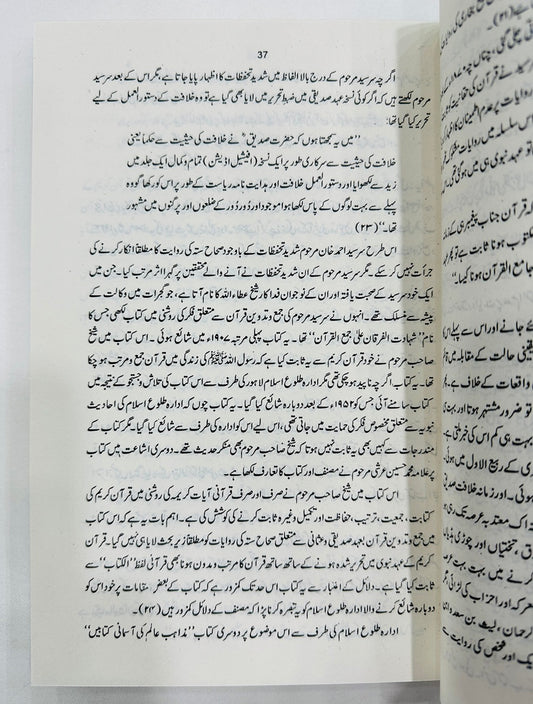 37
اگرچہ سرسید مرحوم کے درج بالا الفاظ میں شدید تحفظات کا اظہار پایا جاتا ہے، مگر اس کے بعد سرسید
مرحوم لکھتے ہیں کہ اگر کوئی نسخہ عہد صدیقی میں ضبط تحریر میں لایا بھی گیا ہے تو وہ خلافت کے دستور العمل کے لیے
تحریر کیا گیا تھا:
"میں یہ سمجھتا ہوں کہ حضرت صدیقؓ نے خلافت کی حیثیت سے حکماً یعنی
خلافت کی حیثیت سے سرکاری طور پر ایک نسخہ (آفیشل اڈیشن) تمام و کمال ایک جلد میں
زید سے لکھوایا اور دستور العمل خلافت اور ہدایت نامہ ریاست کے طور پر اس کو رکھا گو وہ
پہلے سے بہت لوگوں کے پاس لکھا ہوا موجود اور دُور دُور کے ضلعوں اور پرگنوں میں مشہور
تھا۔" (۲۳)
اس طرح سرسید احمد خان مرحوم شدید تحفظات کے باوجود صحاح ستہ کی روایت کا مطلقاً انکار کرنے کی
جرأت نہیں کر سکے۔ مگر سرسید مرحوم کے ان شدید تحفظات نے آنے والے محققین پر گہرا اثر مرتب کیا۔ جن میں
ایک خود سرسید کے صحبت یافتہ اور ان کے نوجوان فدا کار شیخ عطاء اللہ کا نام آتا ہے، جو گجرات میں وکالت کے
پیشہ سے منسلک تھے۔ انہوں نے سرسید مرحوم کی جمع و تدوین قرآن سے متعلق فکر کی روشنی میں کتاب لکھی جس کا
نام "شہادت الفرقان علی جمع القرآن" تھا۔ یہ کتاب پہلی مرتبہ ۱۹۰۴ء میں شائع ہوئی۔ اس میں شیخ
صاحب مرحوم نے خود قرآن کریم سے یہ ثابت کیا ہے کہ رسول اللہ ﷺ کی زندگی میں قرآن جمع و مرتب ہو چکا
تھا۔ یہ کتاب اگرچہ ناپید ہو چکی تھی مگر ادارہ طلوع اسلام لاہور کی طرف سے اس کتاب کی تلاش و جستجو کے نتیجہ میں
کتاب سامنے آئی، جس کو ۱۹۵۲ء کے بعد دوبارہ شائع کیا گیا۔ یہ کتاب چوں کہ ادارہ طلوع اسلام کی احادیث
نبویہ سے متعلق مخصوص فکر کی حمایت میں جاتی تھی، اس لیے اس کو ادارہ کی طرف سے شائع کیا گیا۔ مگر کتاب کے
مندرجات سے کہیں بھی یہ ثابت نہیں ہوتا کہ شیخ صاحب مرحوم بھی منکر حدیث تھے۔ دوسری اشاعت میں کتاب
پر علامہ محمد حسین عرشی مرحوم نے مصنف اور کتاب کا تعارف لکھا ہے۔
اس کتاب میں شیخ صاحب مرحوم نے صرف اور صرف قرآنی آیات کریمہ کی روشنی میں قرآن کریم کی
کتابت، جمعیت، ترتیب، حفاظت اور تکمیل وغیرہ کو ثابت کرنے کی کوشش کی ہے۔ اہم بات یہ ہے کہ اس کتاب
میں جمع و تدوین قرآن بعہد صدیقی و عثمانی سے متعلق صحاح ستہ کی روایات کو مطلقاً زیر بحث لایا ہی نہیں گیا۔ قرآن
کریم کے عہد نبوی میں تحریر شدہ ہونے کے ساتھ ساتھ قرآن کا مرتب و مدون ہونا بھی قرآنی لفظ "الکتاب" سے
ثابت کیا گیا ہے۔ دلائل کے اعتبار سے یہ کتاب اس حد تک کمزور ہے کہ کتاب کے بعض مقامات پر خود اس کو
دوبارہ شائع کرنے والا ادارہ طلوع اسلام کو یہ تبصرہ کرنا پڑا کہ مصنف کے دلائل کمزور ہیں (۲۴)
ادارہ طلوع اسلام کی طرف سے اس موضوع پر دوسری کتاب "مذاہب عالم کی آسمانی کتابیں"